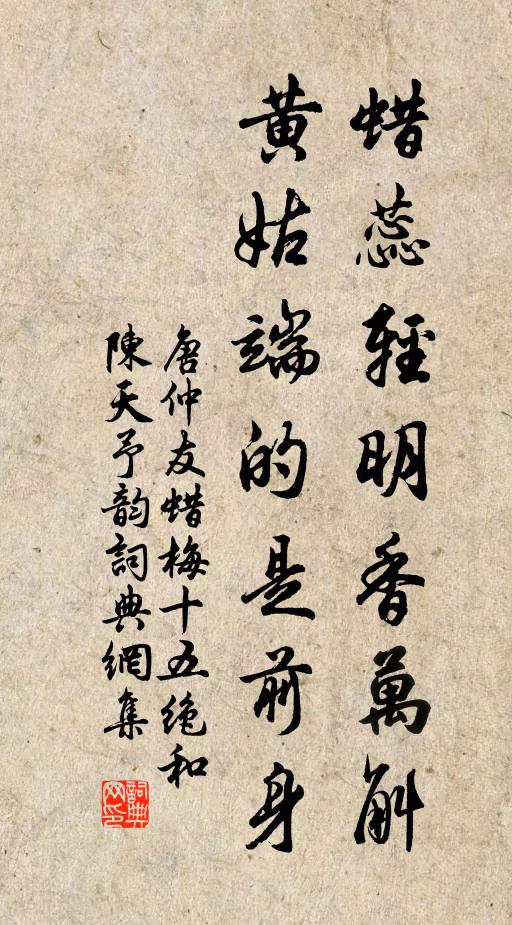 蜡蕊輕明香萬斛
黄姑端的是前身
唐仲友蜡梅十五绝和
陳天予韵詞典網集
詞典网印